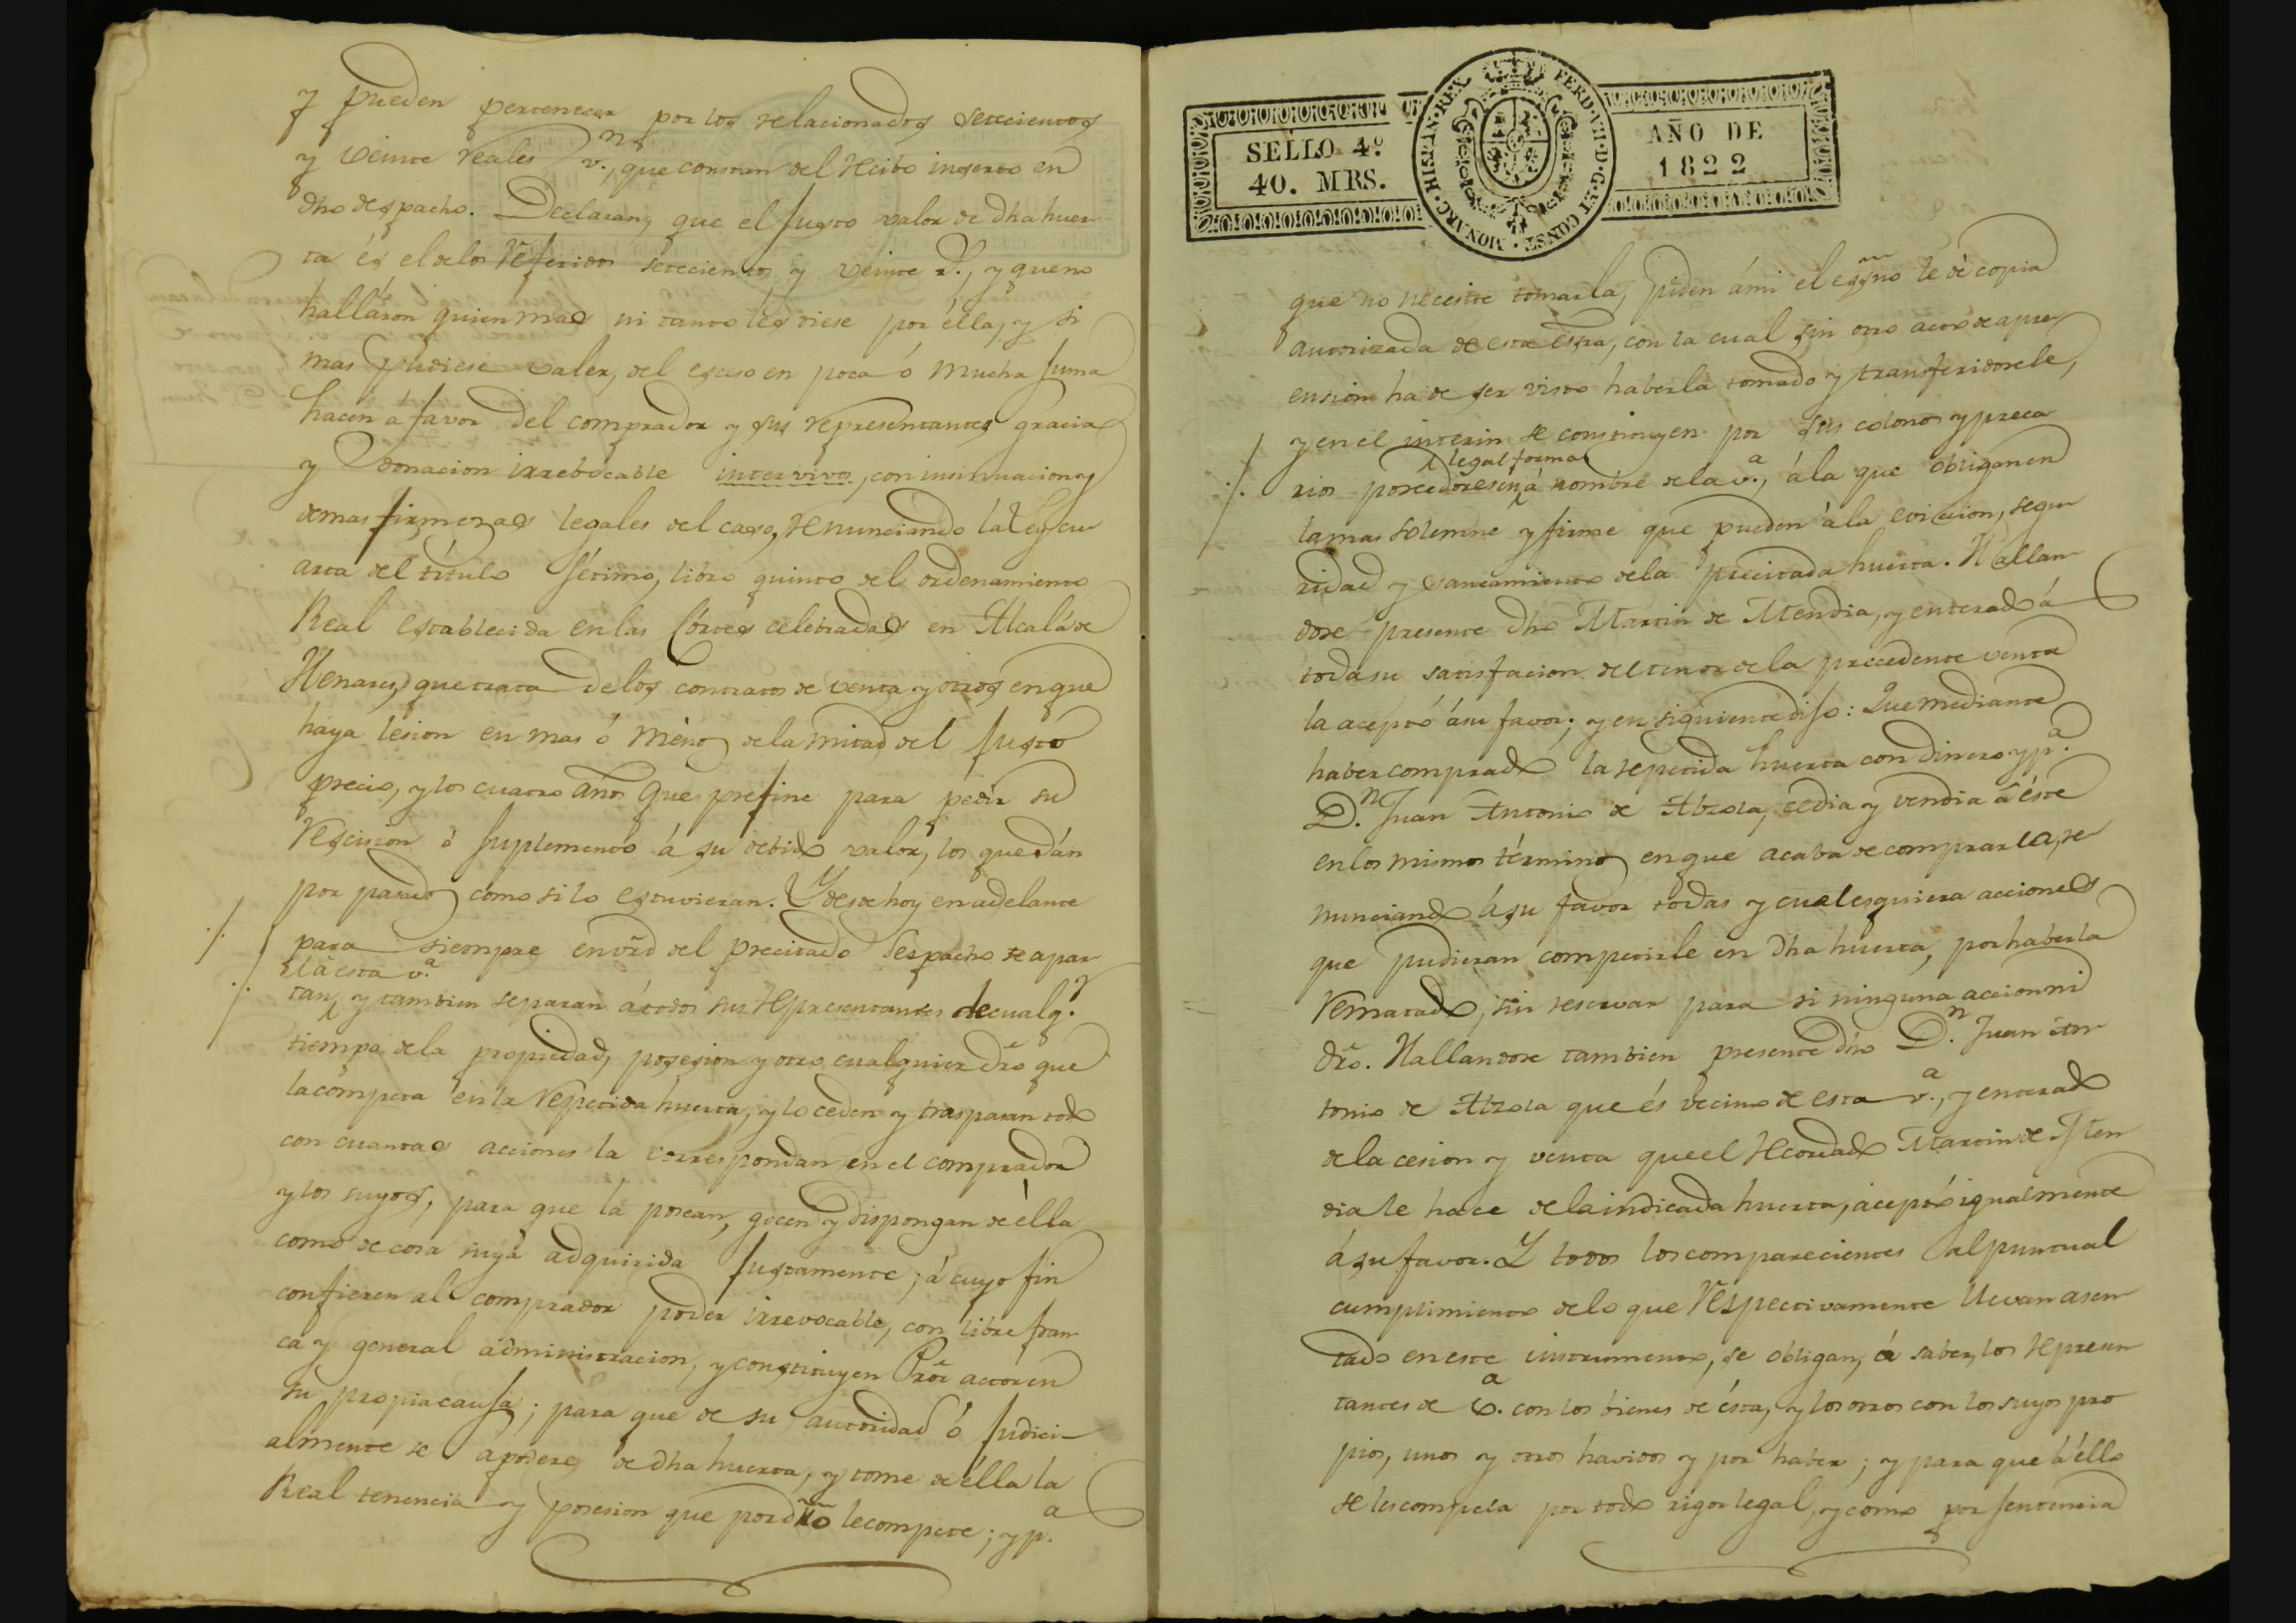 y pueden pertenecer por los relacionados setecientos
y veinte reales v.n, que constan del recibo inserto en
dho despacho. Declaran, que el justo valor de dha huer
ta és el de los referidos setecientos y veinte r.s, y que no
halláron quien mas ni tanto les diese por élla, y si
mas pudiese valer, del exceso en poca ó mucha suma
hacen á favor del comprador y sus representantes gracia
y donacion irrebocable intervivos, con insinuacion y
demas firmezas legales del caso, renunciando la Ley cu
arta del título sétimo, libro quinto del ordenamiento
Real establecida en las Córtes celebradas en Alcalá de
Henares, que trata de los contratos de venta y otros en que
haya lesion en mas ó ménos de la mitad del justo
precio, y los cuatro años que prefine para pedir su
rescision ó suplemento á su debido valor, los que dán
por pasados como si lo estuvieran. Y desde hoy en adelante
para siempre en vrd del precitado despacho se apar
el á esta v.a
tan, y tambien separan á todos sus representantes de cualq.r
tiempo de la propiedad, posesion y otro cualquier dro que
la competa en la repetida huerta, y lo ceden y traspasan todo
con cuantas acciones la correspondan en el comprador
y los suyos, para que la posean, gocen y dispongan de élla
como de cosa suya adquirida justamente; á cuyo fin
confieren al comprador poder irrevocable, con libre fran
ca y general administracion, y constituyen Pror actor en
su propia causa; para que de su autoridad ó judici-
almente se apodere de dha huerta, y tome de élla la
Real tenencia y posesion que por dro le compete; y p.a
SELLO 4º
40. MRS.
FERD. VII. D. G. ET CONST. MONARC. HISPAN. REX
AÑO DE
1822
que no necesite tomarla, piden á mi el essno le dé copia
autorizada de esta essra, con la cual sin otro acto de apre
ension ha de ser visto haberla tomado y transferidosele,
y en el interin se constituyen por sus colonos y preca
legal forma
rios poseedores en á nombre de la v.a, á la que obligan en
la mas solemne y firme que pueden á la eviccion, segu
ridad y saneamiento de la precitada huerta. Hallan
dose presente dho Martin de Mendia, y enterado á
toda su satisfacion del tenor de la precedente venta
la aceptó á su favor; y en siguiente dijo: Que mediante
haber comprado la repetida huerta con dinero y p.a
D.n Juan Antonio de Abzola, cedia y vendia á éste
en los mismos términos en que acaba de comprarla, re
nunciando á su favor todas y cualesquiera acciones
que pudieran competirle en dha huerta, por haberla
rematado, sin reservar para si ninguna accion ni
dro. Hallandose tambien presente dho D.n Juan An
tonio de Abzola que és vecino de esta v.a, y enterado
de la cesion y venta que el recordado Martin de Men
dia le hace de la indicada huerta, aceptó igualmente
á su favor. Y todos los comparecientes al puntual
cumplimiento de lo que respectivamente llevan asen
tado en este instrumento, se obligan, á saber, los represen
tantes de v.a con los bienes de ésta, y los otros con los suyos pro
pios, unos y otros havidos y por haber; y para que á éllo
se les compela por todo rigor legal, y como por sentencia